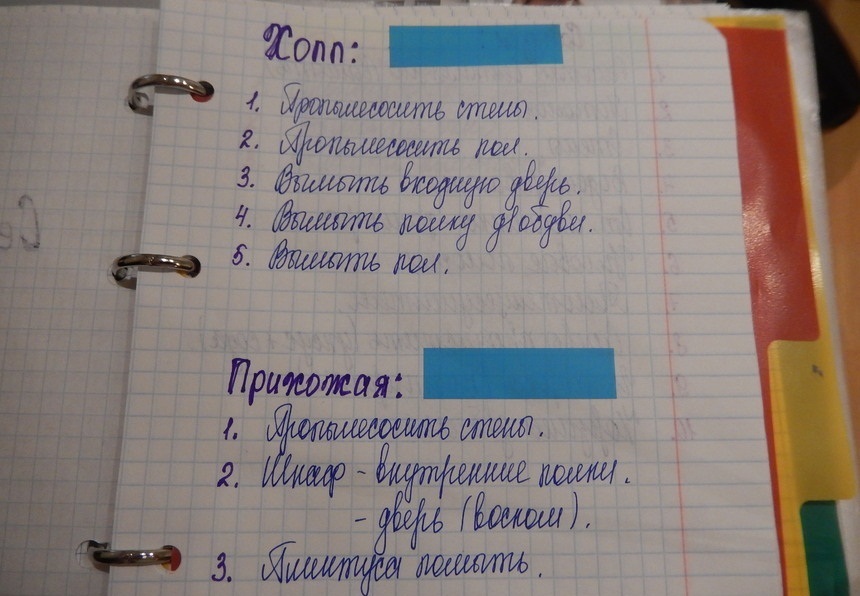 Холл:
1. Пропылесосить стены.
2. Пропылесосить пол.
3. Вымыть входную дверь.
4. Вымыть полку д/обуви.
5. Вымыть пол.
Прихожая:
1. Пропылесосить стены.
2. Шкаф - внутренние полки.
- дверь (воском).
3. Плинтуса помыть.